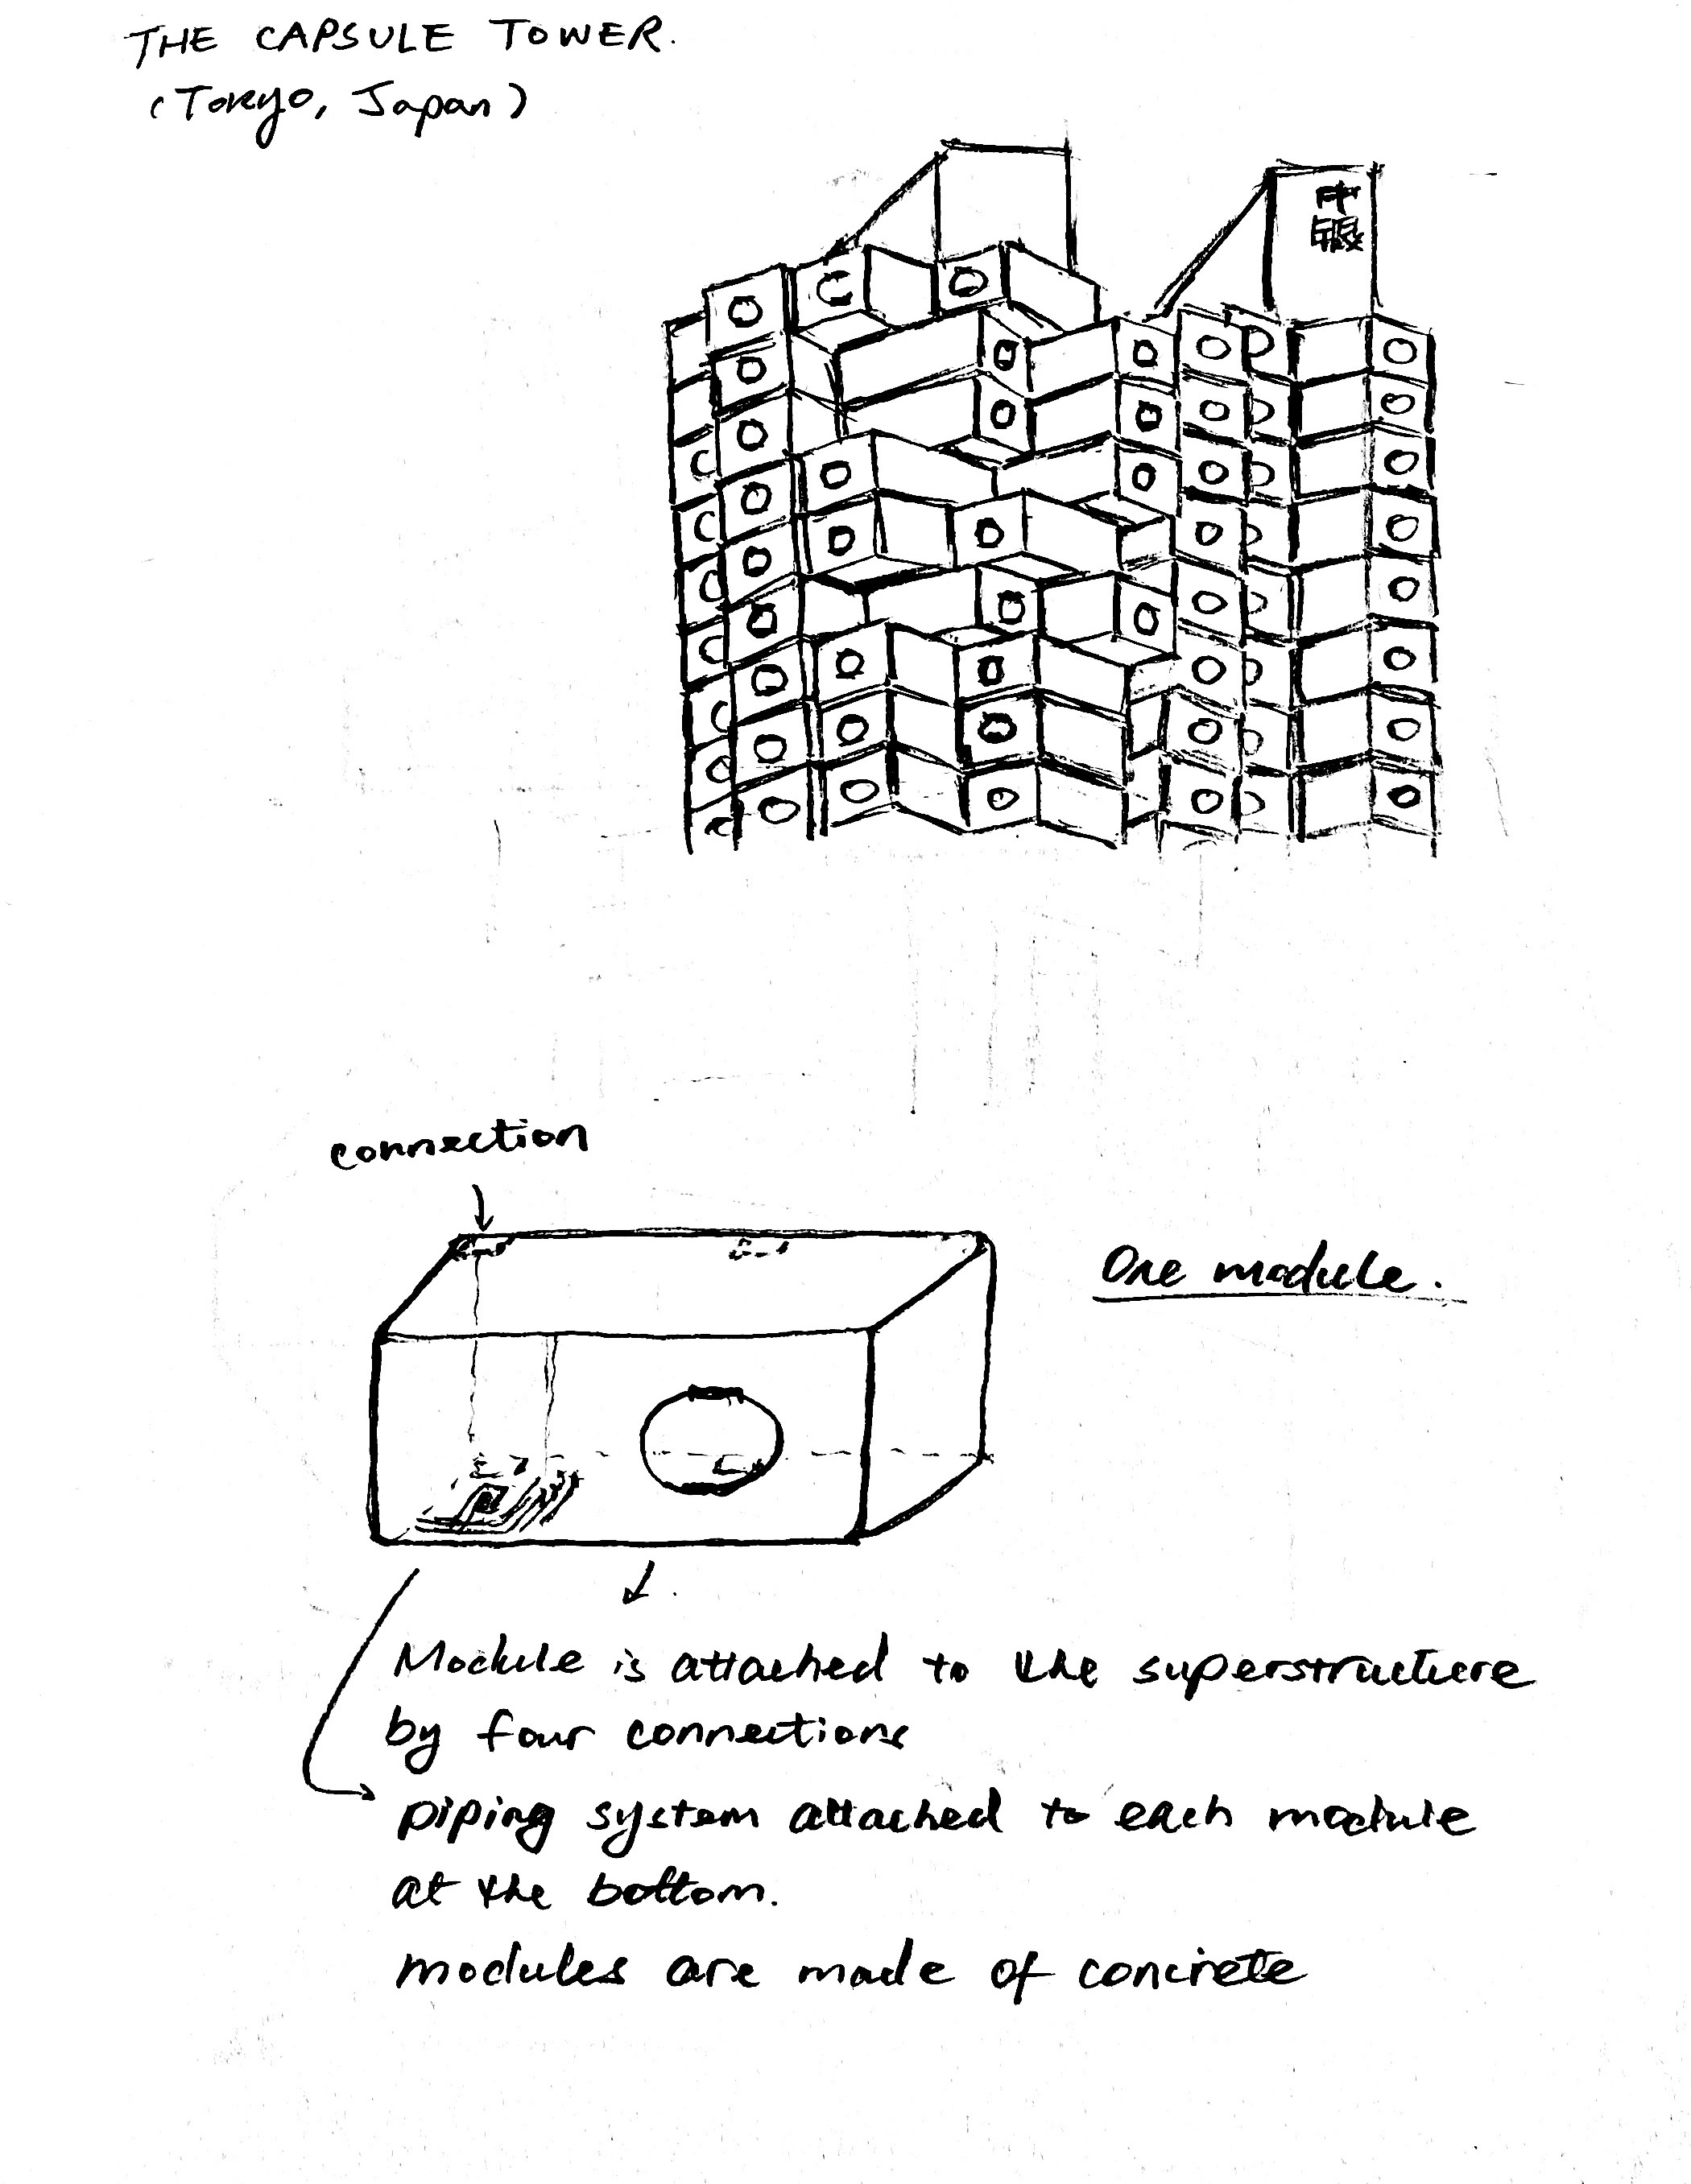 THE CAPSULE TOWER.
(Tokyo, Japan)
中
銀
connection
One module.
Module is attached to the superstructure
by four connections
piping system attached to each module
at the bottom.
modules are made of concrete